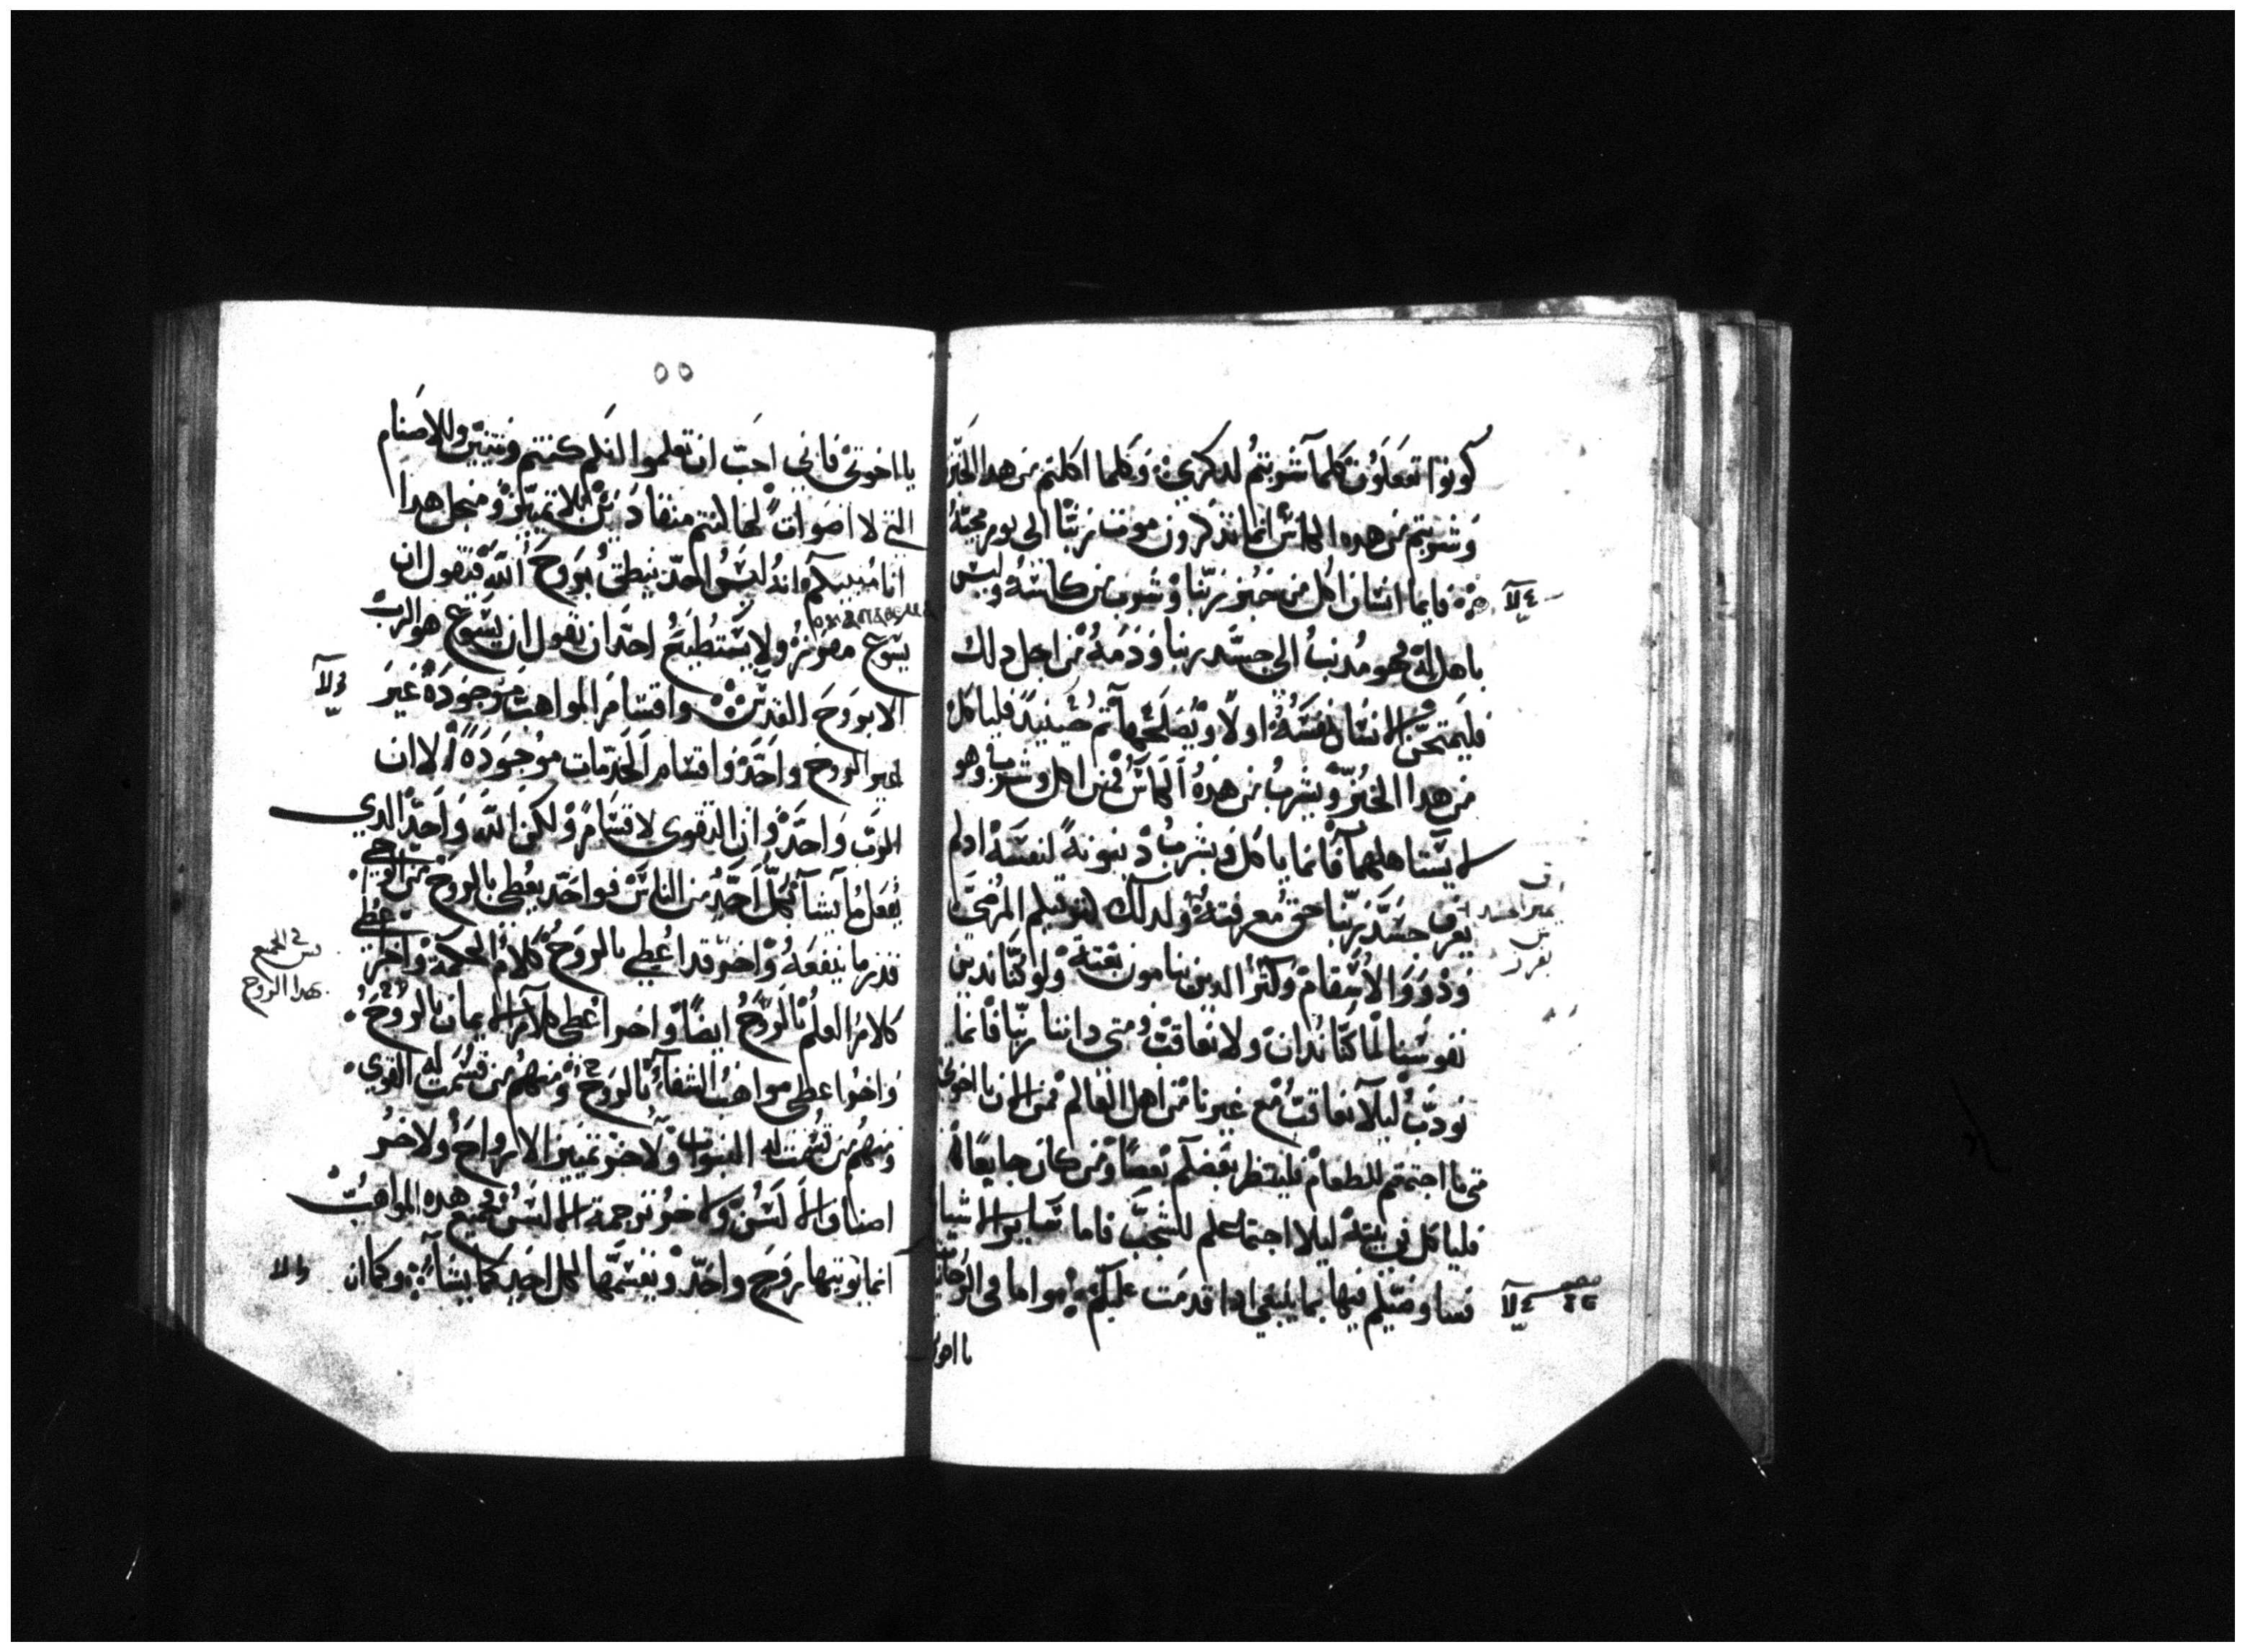 كونوا تفعلون كلما شربتم لدكري. وكلما اكلتم من هدا الخبز
وشربتم من هده الكاس انما تدكرون موت ربنا الى يوم مجيه
فايما انسان اكل من خبز ربنا وشرب من كاسه وليس
باهل له فهو مدنب الى جسد ربنا ودمه من اجل دلك
فليمتحن الانسان نفسه اولا ويصلحها ثم حينيد فلياكل
من هدا الخبز ويشرب من هده الكاس فمن اكل وشرب وهو
لا يستاهلهما فانما ياكل ويشرب دينونة لنفسه اد لم
يعرف جسد ربنا حق معرفته ولدلك كثر فيكم المرضى
ودووا الاسقام وكثر الدين ينامون بغتة ولو كنا ندين
نفوسنا لما كنا ندان ولا نعاقب ومتى داننا ربنا فانما
نودب ليلا نعاقب مع غيرنا من اهل العالم فمن الان يا اخوتي
متى ما اجتمعتم للطعام فلينتظر بعضكم بعضا ومن كان جايعا
فلياكل في بيته ليلا اجتماعكم للشجب فاما ساير الاشيا
فساوصيكم فيها بما ينبغي ادا قدمت عليكم. واما في الروحانية
يا اخو
٥٥
يا اخوتي فاني احب ان تعلموا انكم كنتم وثنيين وللاصنام
التي لا اصوات لها كنتم منقادين بلا تمييز ومن اجل هدا
انا مبينكم انه ليس احد ينطق بروح الله فيقول ان
يسوع مفروز ولا يستطيع احد ان يقول ان يسوع هو الرب
الا بروح القدس واقسام المواهب موجودة غير
غير الروح واحد واقسام الخدمات موجودة الا ان
الرب واحد وان القوى لاقسام ولكن الله واحد الدي
يفعل ما يشا بكل احد من الناس فواحد يعطى بالروح من الوحي
قدر ما ينفعه واخر قد اعطي بالروح كلام الحكمة واخر
كلام العلم بالروح ايضا واخر اعطي كلام الايمان بالروح
واخر اعطي مواهب الشفا بالروح ومنهم من قسمت له القوى
ومنهم من قسمت له النبوات ولاخر تمييز الارواح ولاخر
اصناف الالسن ولاخر ترجمة الالسن فجميع هده المواهب
انما يوتيها روح واحد ويقسمها لكل احد كما يشا. وكما ان
بهدا الروح